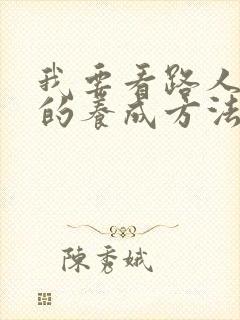 我要看路人
的养成方法
陳秀娥